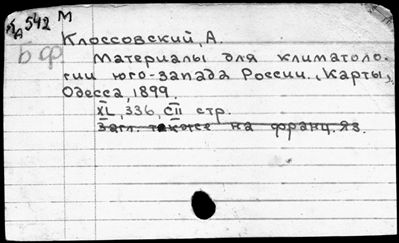 A 542 М
БФ
Клоссовский, А.
Материалы для климатоло-
гии юго-запада России. (Карты),
Одесса, 1899.
XL, 336, CII стр.
Загл. также на франц. яз.